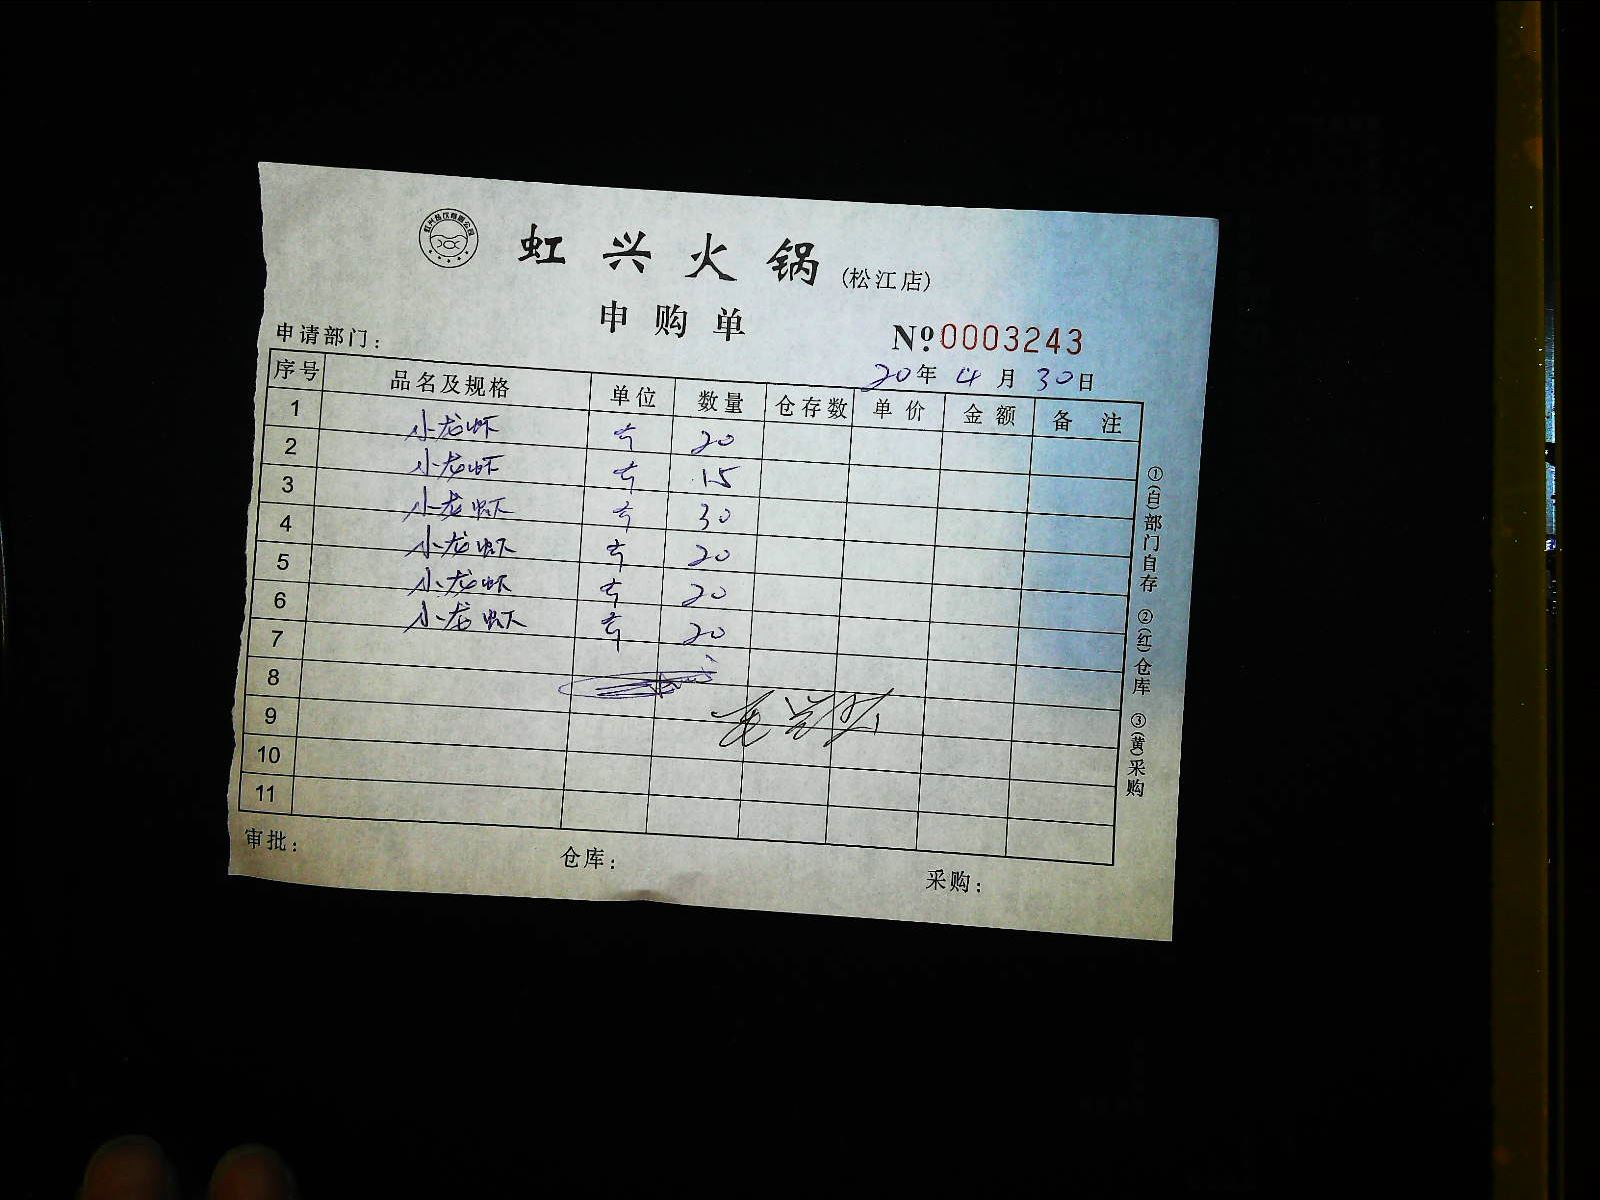 虹兴火锅 (松江店)
申购单
申请部门: №0003243
20年4月30日
序号 品名及规格 单位 数量 仓存数 单价 金额 备注
1 小龙虾 斤 20
2 小龙虾 斤 15
3 小龙虾 斤 30
4 小龙虾 斤 20
5 小龙虾 斤 20
6 小龙虾 斤 20
7
8
9
10
11
审批: 仓库: 采购:
①(白)部门自存 ②(红)仓库 ③(黄)采购